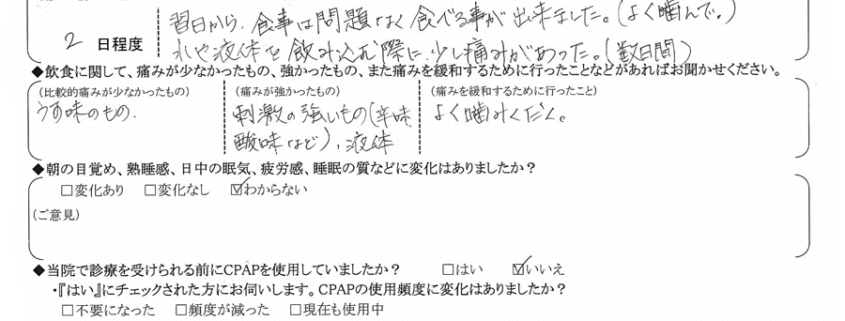 翌日から、食事は問題なく食べる事が出来ました。(よく噛んで。)
2 日程度
水や液体を飲み込む際に少し痛みがあった。(数日間)
◆飲食に関して、痛みが少なかったもの、強かったもの、また痛みを緩和するために行ったことなどがあればお聞かせください。
(比較的痛みが少なかったもの) (痛みが強かったもの) (痛みを緩和するために行ったこと)
うす味のもの. 刺激の強いもの(辛味 よく噛みくだく。
酸味など)、液体
◆朝の目覚め、熟睡感、日中の眠気、疲労感、睡眠の質などに変化はありましたか?
□変化あり □変化なし ☑わからない
(ご意見)
◆当院で診療を受けられる前にCPAPを使用していましたか? □はい ☑いいえ
・『はい』にチェックされた方にお伺いします。CPAPの使用頻度に変化はありましたか?
□不要になった □頻度が減った □現在も使用中